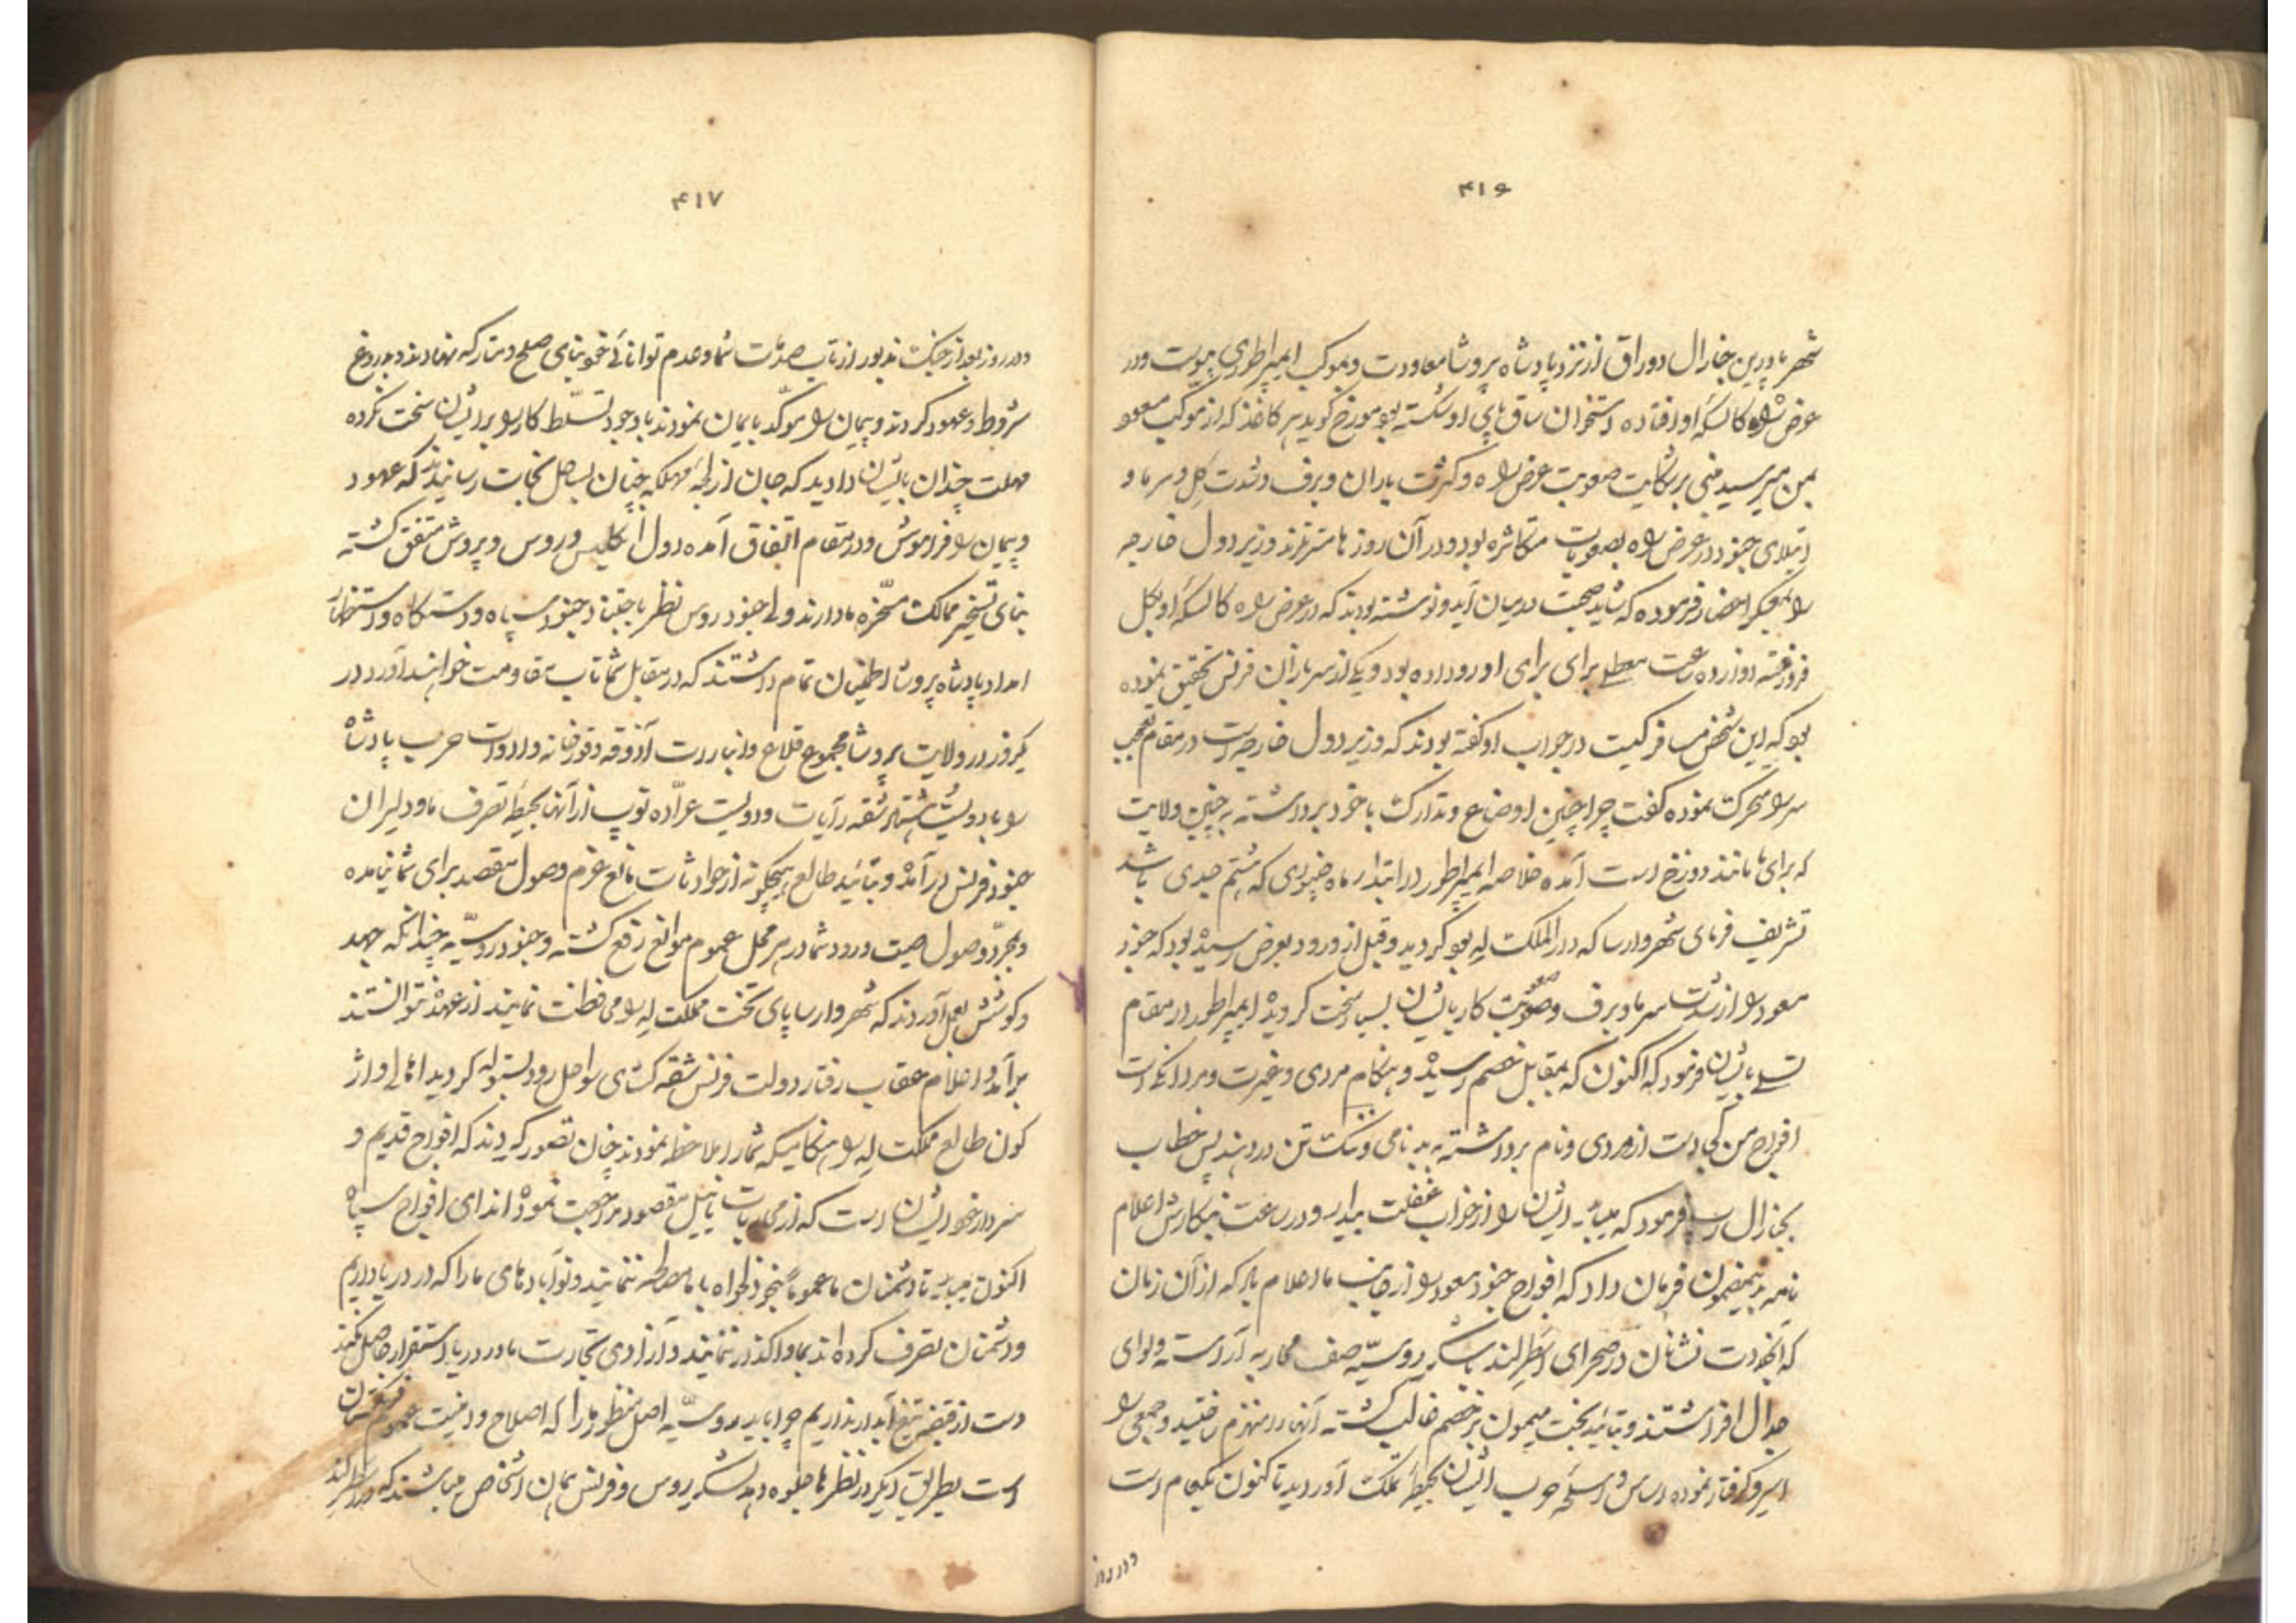 ۴۱۶
شهر مادرین جنارال دوراق از نزد پادشاه پروشا معاودت و بموکب ایمپراطوری پیوست و در
عرض راه کالسکه او افتاده استخوان ساق پای او شکسته بود مورخ گوید هر کاغذ که از موکب مسعود
بمن میرسید مبنی بر شکایت صعوبت عرض راه و کثرت باران و برف و شدت گل و سرما و
ابتلای جنود در عرض راه بصعوبات متکاثره بود و در آن روزها وزیر دول خارجه
را بمعسکر احضار فرموده که شاید صحبت در میان آید و نوشته بودند که در عرض راه کالسکه او بگل
فرو رفته دوازده ساعت معطلی برای او رو داده بود و یکی از سربازان فرنس تحقیق نموده
بود که این شخص مسافر کیست در جواب او گفته بودند که وزیر دول خارجه است در مقام تعجب
سر را متحرک نموده گفت چرا چنین اوضاع و تدارک با خود برداشته به چنین ولایت
که برای ما مانند دوزخ است آمده خلاصه ایمپراطور در ابتدا ماه جنوری که هشتم جدی باشد
تشریف فرمای شهر وارسا که دار الملکت له بود گردید و قبل از ورود بعرض رسیده بود که جنود
مسعود را از شدت سرما و برف و صعوبت کار بایشان بسیار سخت گردیده ایمپراطور در مقام
تسلی بایشان فرمود که اکنون که بمقابل خصم رسیده و هنگام مردی و غیرت و مردانگی است
افواج من کی دست از مردی و نام برداشته به بدنامی و ننگ تن در دهند پس خطاب
بجنارال فرمود که بیا ایشان را از خواب غفلت بیدار و در ساعت بنگارش اعلام
نامه بدینمضمون فرمان داد که افواج جنود مسعود را از جانب ما اعلام باد که از آن زمان
که آنجودت نشانان در صحرای اسطرلند با لشکر روسیّه صف محاربه آراسته و لوای
جدال افراشتند و بتائید بخت میمون بر خصم غالب گشته آنها را منهزم ساختید و جمعی را
اسیر و گرفتار نموده اساس و اسلحه حرب ایشان بحیطه تملک آوردید تا کنون یکعام است
در روز
۴۱۷
در روز بعد از جنگ مذبور از تاب صدمات شما و عدم توانائی خود بنای صلح و متارکه نهادند و بدروغ
شروط و عهود کردند و پیمان را مؤکّد بایمان نمودند با وجود تسلّط کار را بر ایشان سخت نکرده
مهلت چندان بایشان دادید که جان از لجّه مهلکه چنان بساحل نجات رسانیدند که عهود
و پیمان را فراموش و در مقام اتفاق آمده دول انگلیس و روس و پروش متفق گشته
بنای تسخیر ممالک مسخّره ما دارند و لی جنود روس نظر باجتناد جنود سپاه و دستگاه و استظهار
امداد پادشاه پروشا اطمینان تمام داشتند که در مقابل شما تاب مقاومت خواهند آورد در
یکروز در ولایت پروشا مجموع قلاع و انبارات آذوقه و قورخانه و ادوات حرب پادشاه
را با دویست شقه رآیات و دویست عرّاده توپ از آنها بحیطه تصرف ما و دلیران
جنود فرنس درآمده و بتائید طالع هیچگونه از حوادثات مانع عزم وصول مقصد برای شما نیامده
و بمجرّد وصول صیت ورود شما در هر محل عموم موانع رفع گشته و جنود روسیّه چندانکه جهد
و کوشش بعمل آوردند که شهر وارسا پای تخت مملکت له را محافظت نمایند از عهده نتوانستند
برآمد و اعلام عقاب رفتار دولت فرنس شقه گشای سواحل رود بستوله گردید اهالی واژ
کون طالع مملکت له را هنگامیکه شما را ملاحظه نمودند چنان تصور کردند که افواج قدیم و
سردار خود ایشان است که از محاربات با نیل مقصود مراجعت نموده اند ای افواج سپاه
اکنون میباید تا دشمنان ما عموما بنحو دلخواه با ما مصالحه ننمایند و نوآبادهای ما را که در دریا داریم
و دشمنان تصرف کرده اند بما واگذار ننمایند و آزادی تجارت ما در دریا استقرار حاصل نکند
دست از قبضه تیغ آبدار نداریم چرا باید روسیّه اصل منظور ما را که اصلاح و امنیت عموم فرنگستان
است بطریق دیگر در نظرها جلوه دهد لشکر روس و فرنس همان اشخاص میباشند که در اسطرلند